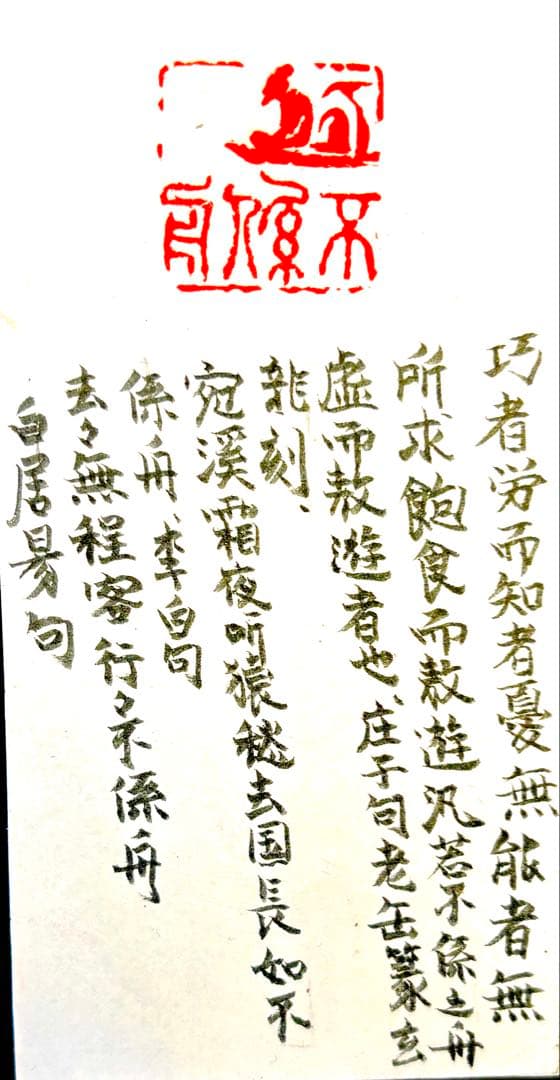 不係
巧者労而知者憂無能者無
所求飽食而敖遊汎若不係之舟
虚而敖遊者也、庄子句老缶篆玄
刻、
宛溪霜夜听猿愁去国長如不
係舟、李白句
去々無程客行々不係舟
白居易句